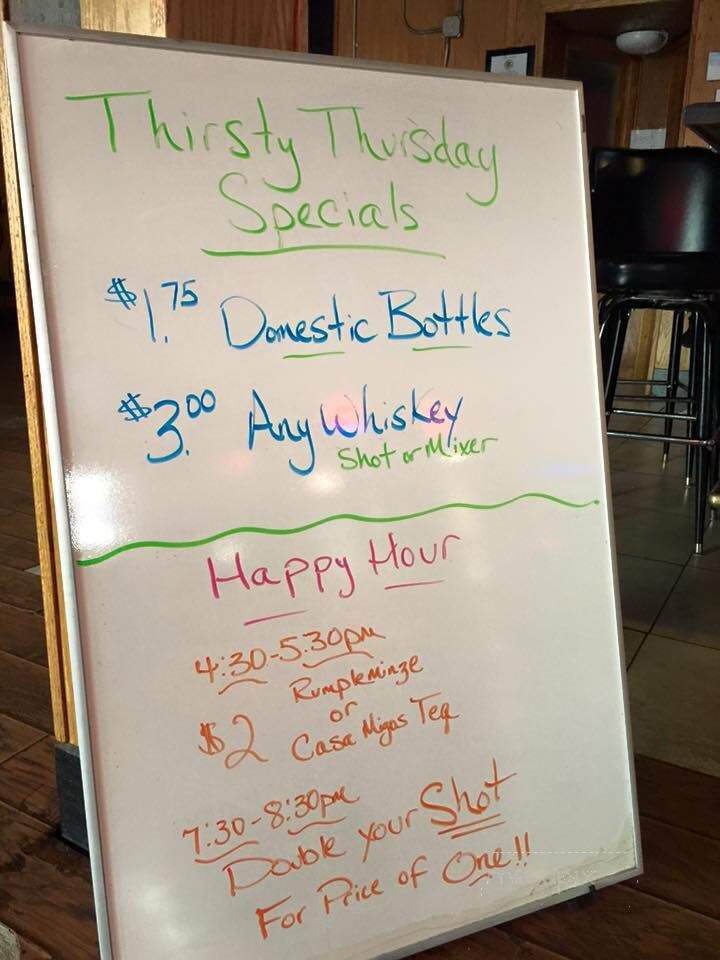 Thirsty Thursday
Specials
$1.75 Domestic Bottles
$3.00 Any Whiskey
Shot or Mixer
Happy Hour
4:30-5:30pm
Rumpleminze
$2 or
Casa Migos Teq
7:30-8:30pm
Double your Shot
For Price of One!!